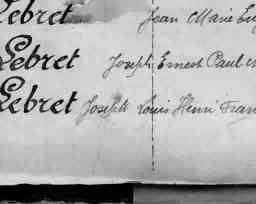 Lebret Jean Marie
Lebret Joseph Ernest Paul
Lebret Joseph Louis Henri